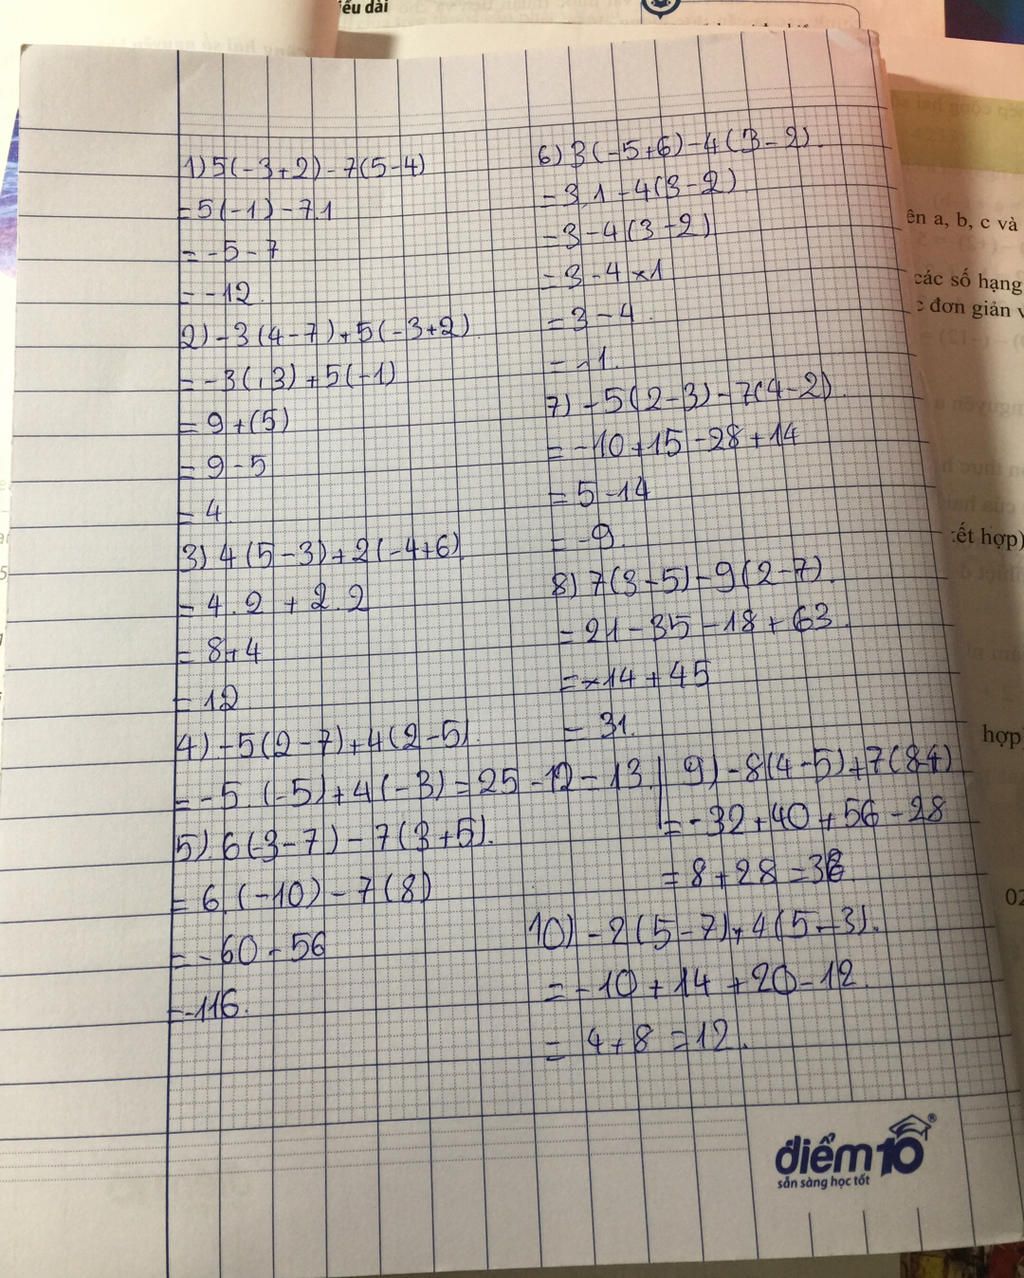 iểu dài
1) 5(-3+2) - 7(5-4)
= 5(-1) - 7.1
= -5 - 7
= -12.
2) -3(4-7) + 5(-3+2)
= -3(-3) + 5(-1)
= 9 + (5)
= 9 - 5
= 4
3) 4(5-3) + 2(-4+6)
= 4.2 + 2.2
= 8 + 4
= 12
4) -5(2-7) + 4(2-5)
= -5.(-5) + 4(-3) = 25 - 12 = 13.
5) 6(-3-7) - 7(3+5).
= 6.(-10) - 7(8)
= -60 - 56
= -116.
6) 3(-5+6) - 4(3-2).
= 3.1 - 4(3-2)
= 3 - 4(3-2)
= 3 - 4 x 1
= 3 - 4.
= -1.
7) -5(2-3) - 7(4-2).
= -10 + 15 - 28 + 14
= 5 - 14
= -9
8) 7(3-5) - 9(2-7).
= 21 - 35 - 18 + 63.
= -14 + 45
= 31.
9) -8(4-5) + 7(8-4)
= -32 + 40 + 56 - 28
= 8 + 28 = 36
10) -2(5-7) + 4(5-3).
= -10 + 14 + 20 - 12.
= 4 + 8 = 12.
ên a, b, c và
các số hạng
đơn giản
kết hợp)
hợp
02
điểm10®
sẵn sàng học tốt